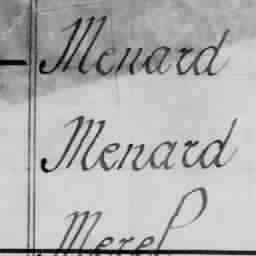 Menard
Menard
Merel